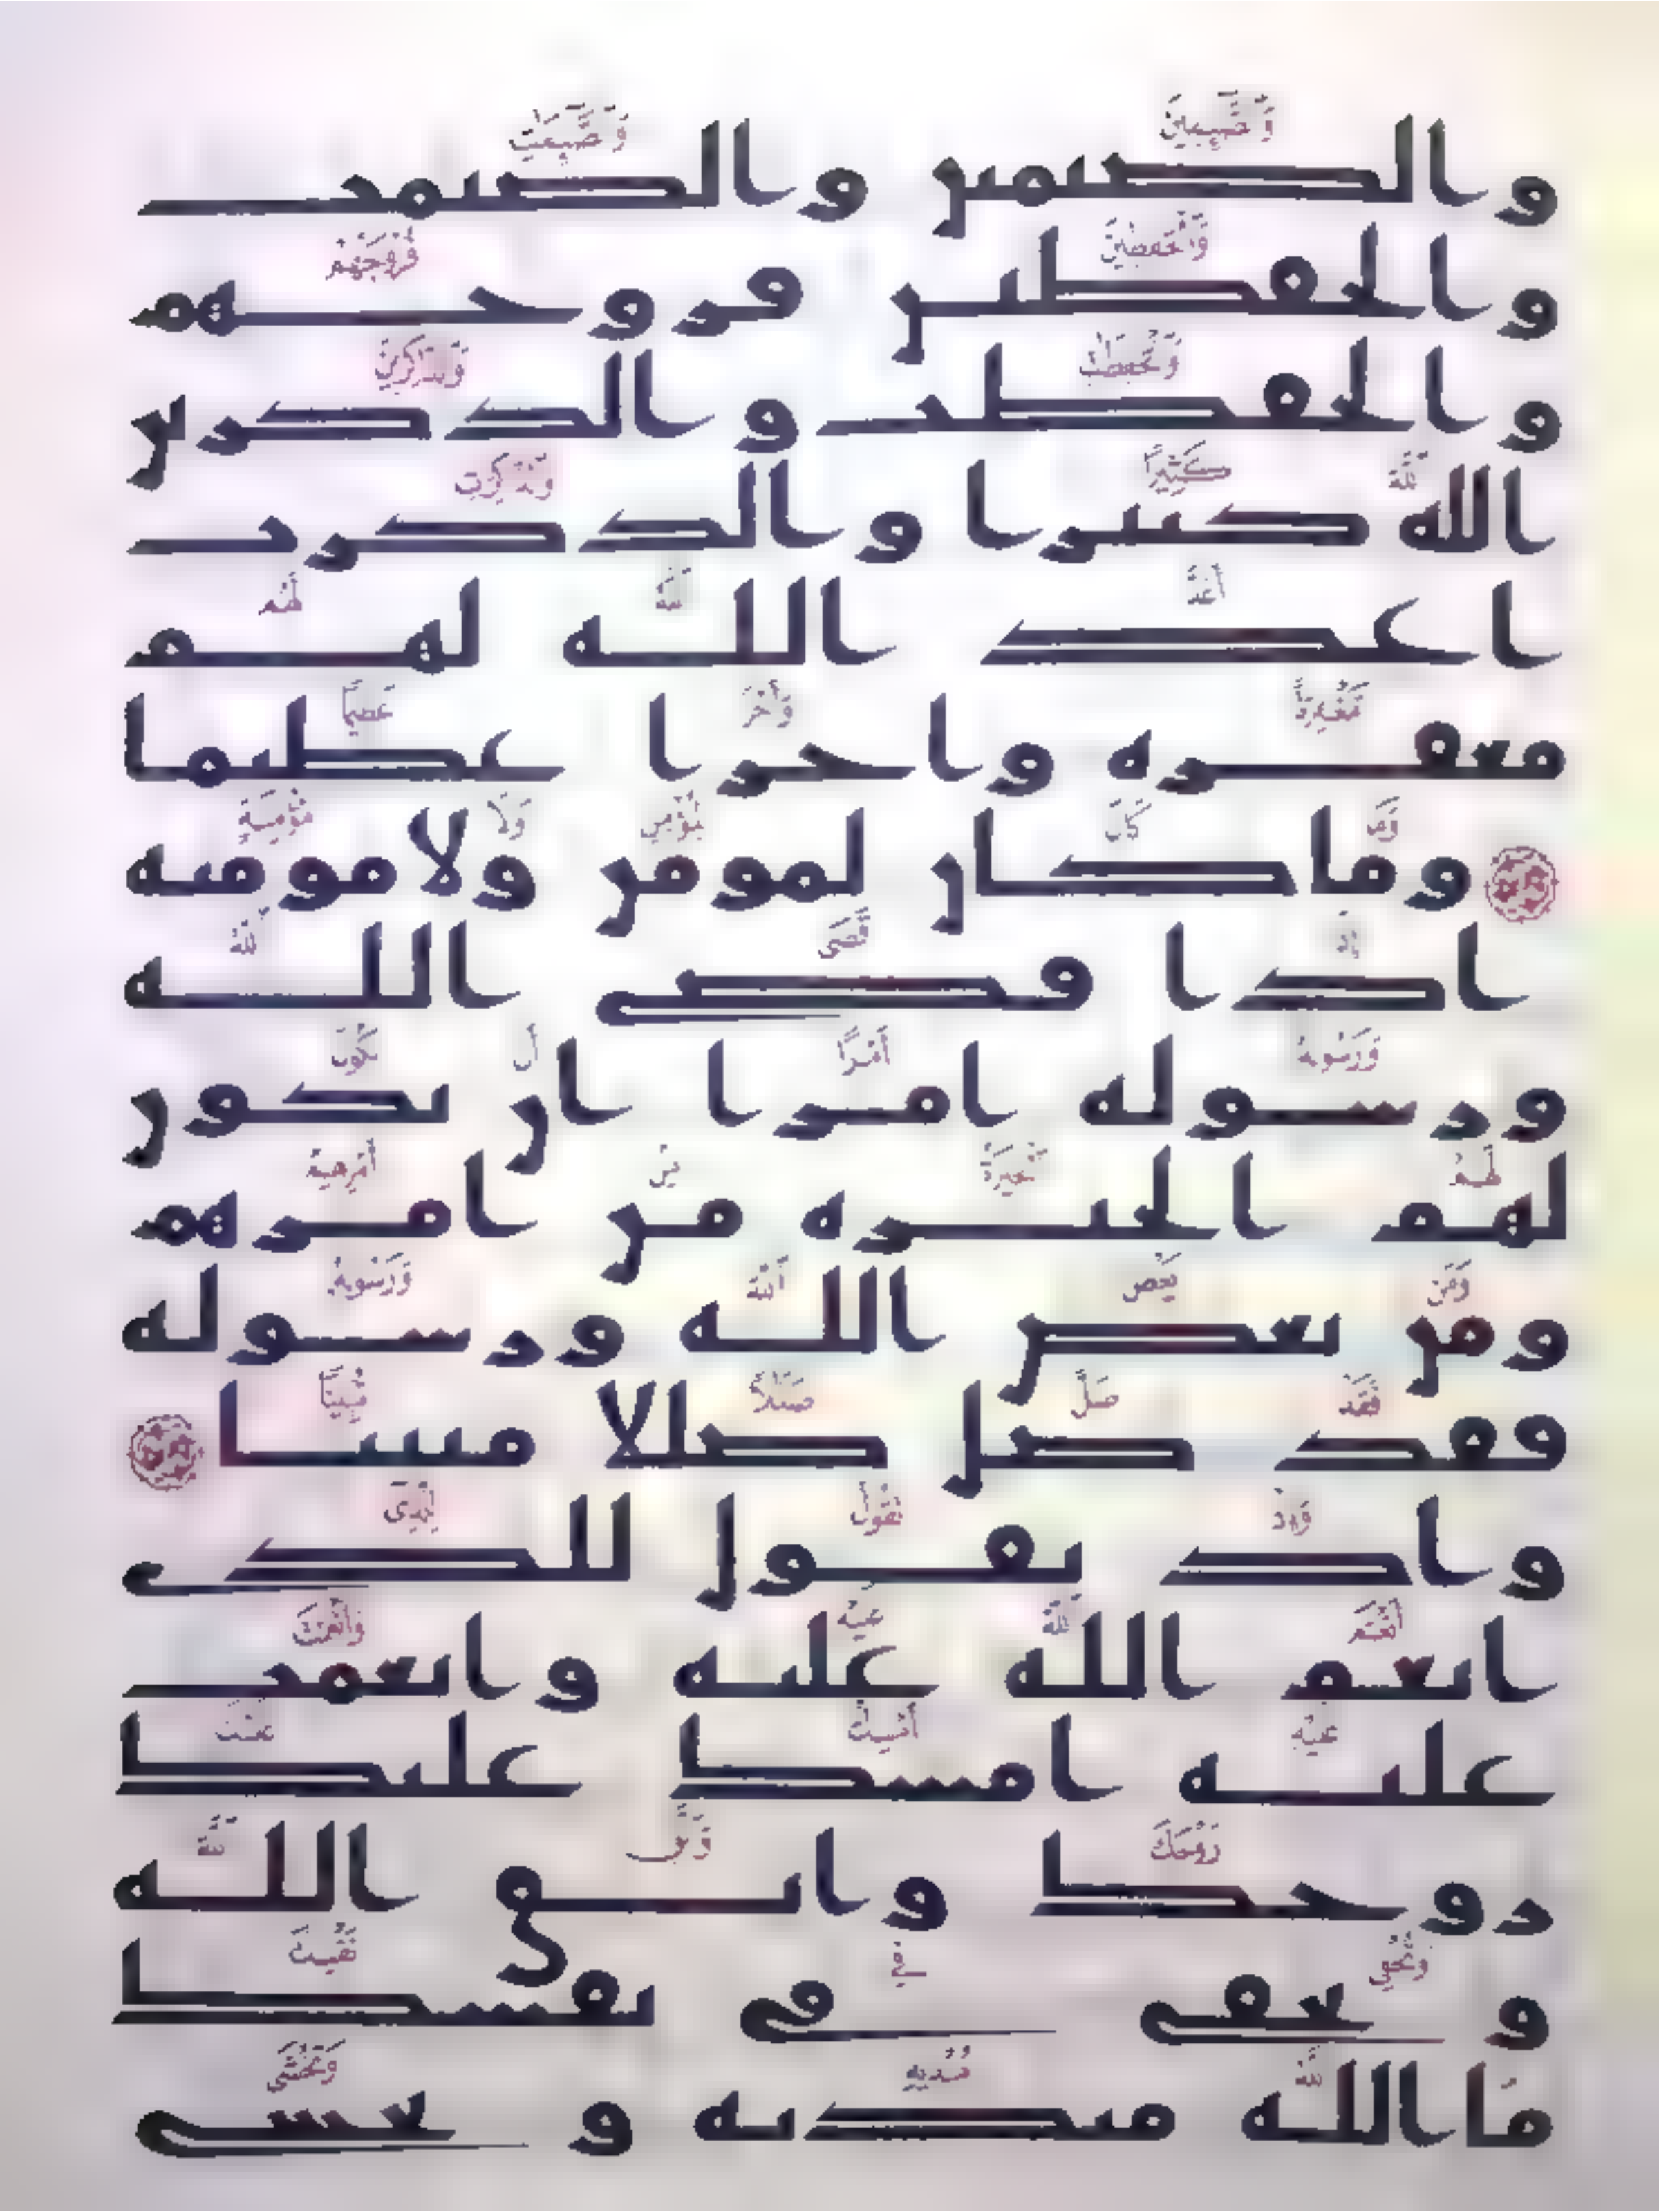 والصيمين والصيمت
والحفظين فروجهم
والحفظت والذكرين
الله كثيرا والذكرت
اعد الله لهم
مغفرة واجرا عظيما
وما كان لمومن ولا مومنة
اذا قضى الله
ورسوله امرا ان يكون
لهم الخيرة من امرهم
ومن يعص الله ورسوله
فقد ضل ضللا مبينا
واذ تقول للذي
انعم الله عليه وانعمت
عليه امسك عليك
زوجك واتق الله
وتخفي في نفسك
ما الله مبديه وتخشى